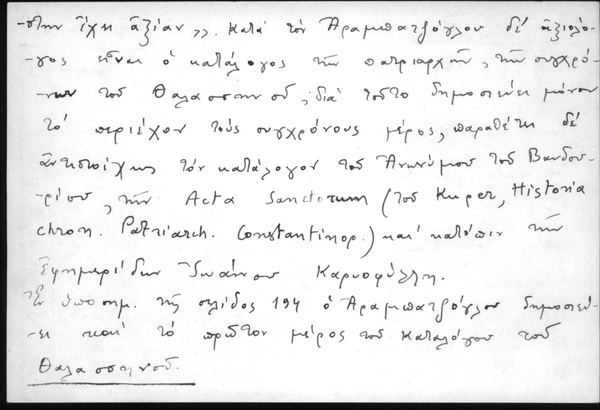 -στην ἔχει ἀξίαν». Κατά τόν Ἀραμπατζόγλου δέ ἀξιόλο-
-γος εἶναι ὁ κατάλογος τῶν πατριαρχῶν, τῶν συγχρό-
-νων τοῦ Θαλασσηνοῦ, διά τοῦτο δημοσιεύει μόνον
τό περιέχον τούς συγχρόνους μέρος, παραθέτει δέ
ἀντιστοίχως τόν κατάλογον τοῦ Ἀνωνύμου τοῦ Βανδου-
-ρίου, τῶν Acta Sanctorum (τοῦ Kuper, Historia
chron. Patriarch. Constantinop.) καί κατόπιν τῶν
Ἐφημερίδων Ἰωάννου Καρυοφύλλη.
Ἐν ὑποσημ. τῆς σελίδος 194 ὁ Ἀραμπατζόγλου δημοσιεύ-
-ει καί τό πρῶτον μέρος τοῦ Καταλόγου τοῦ
Θαλασσηνοῦ.